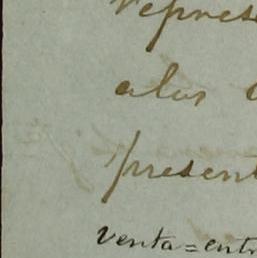 repres
alus
present
venta=entr